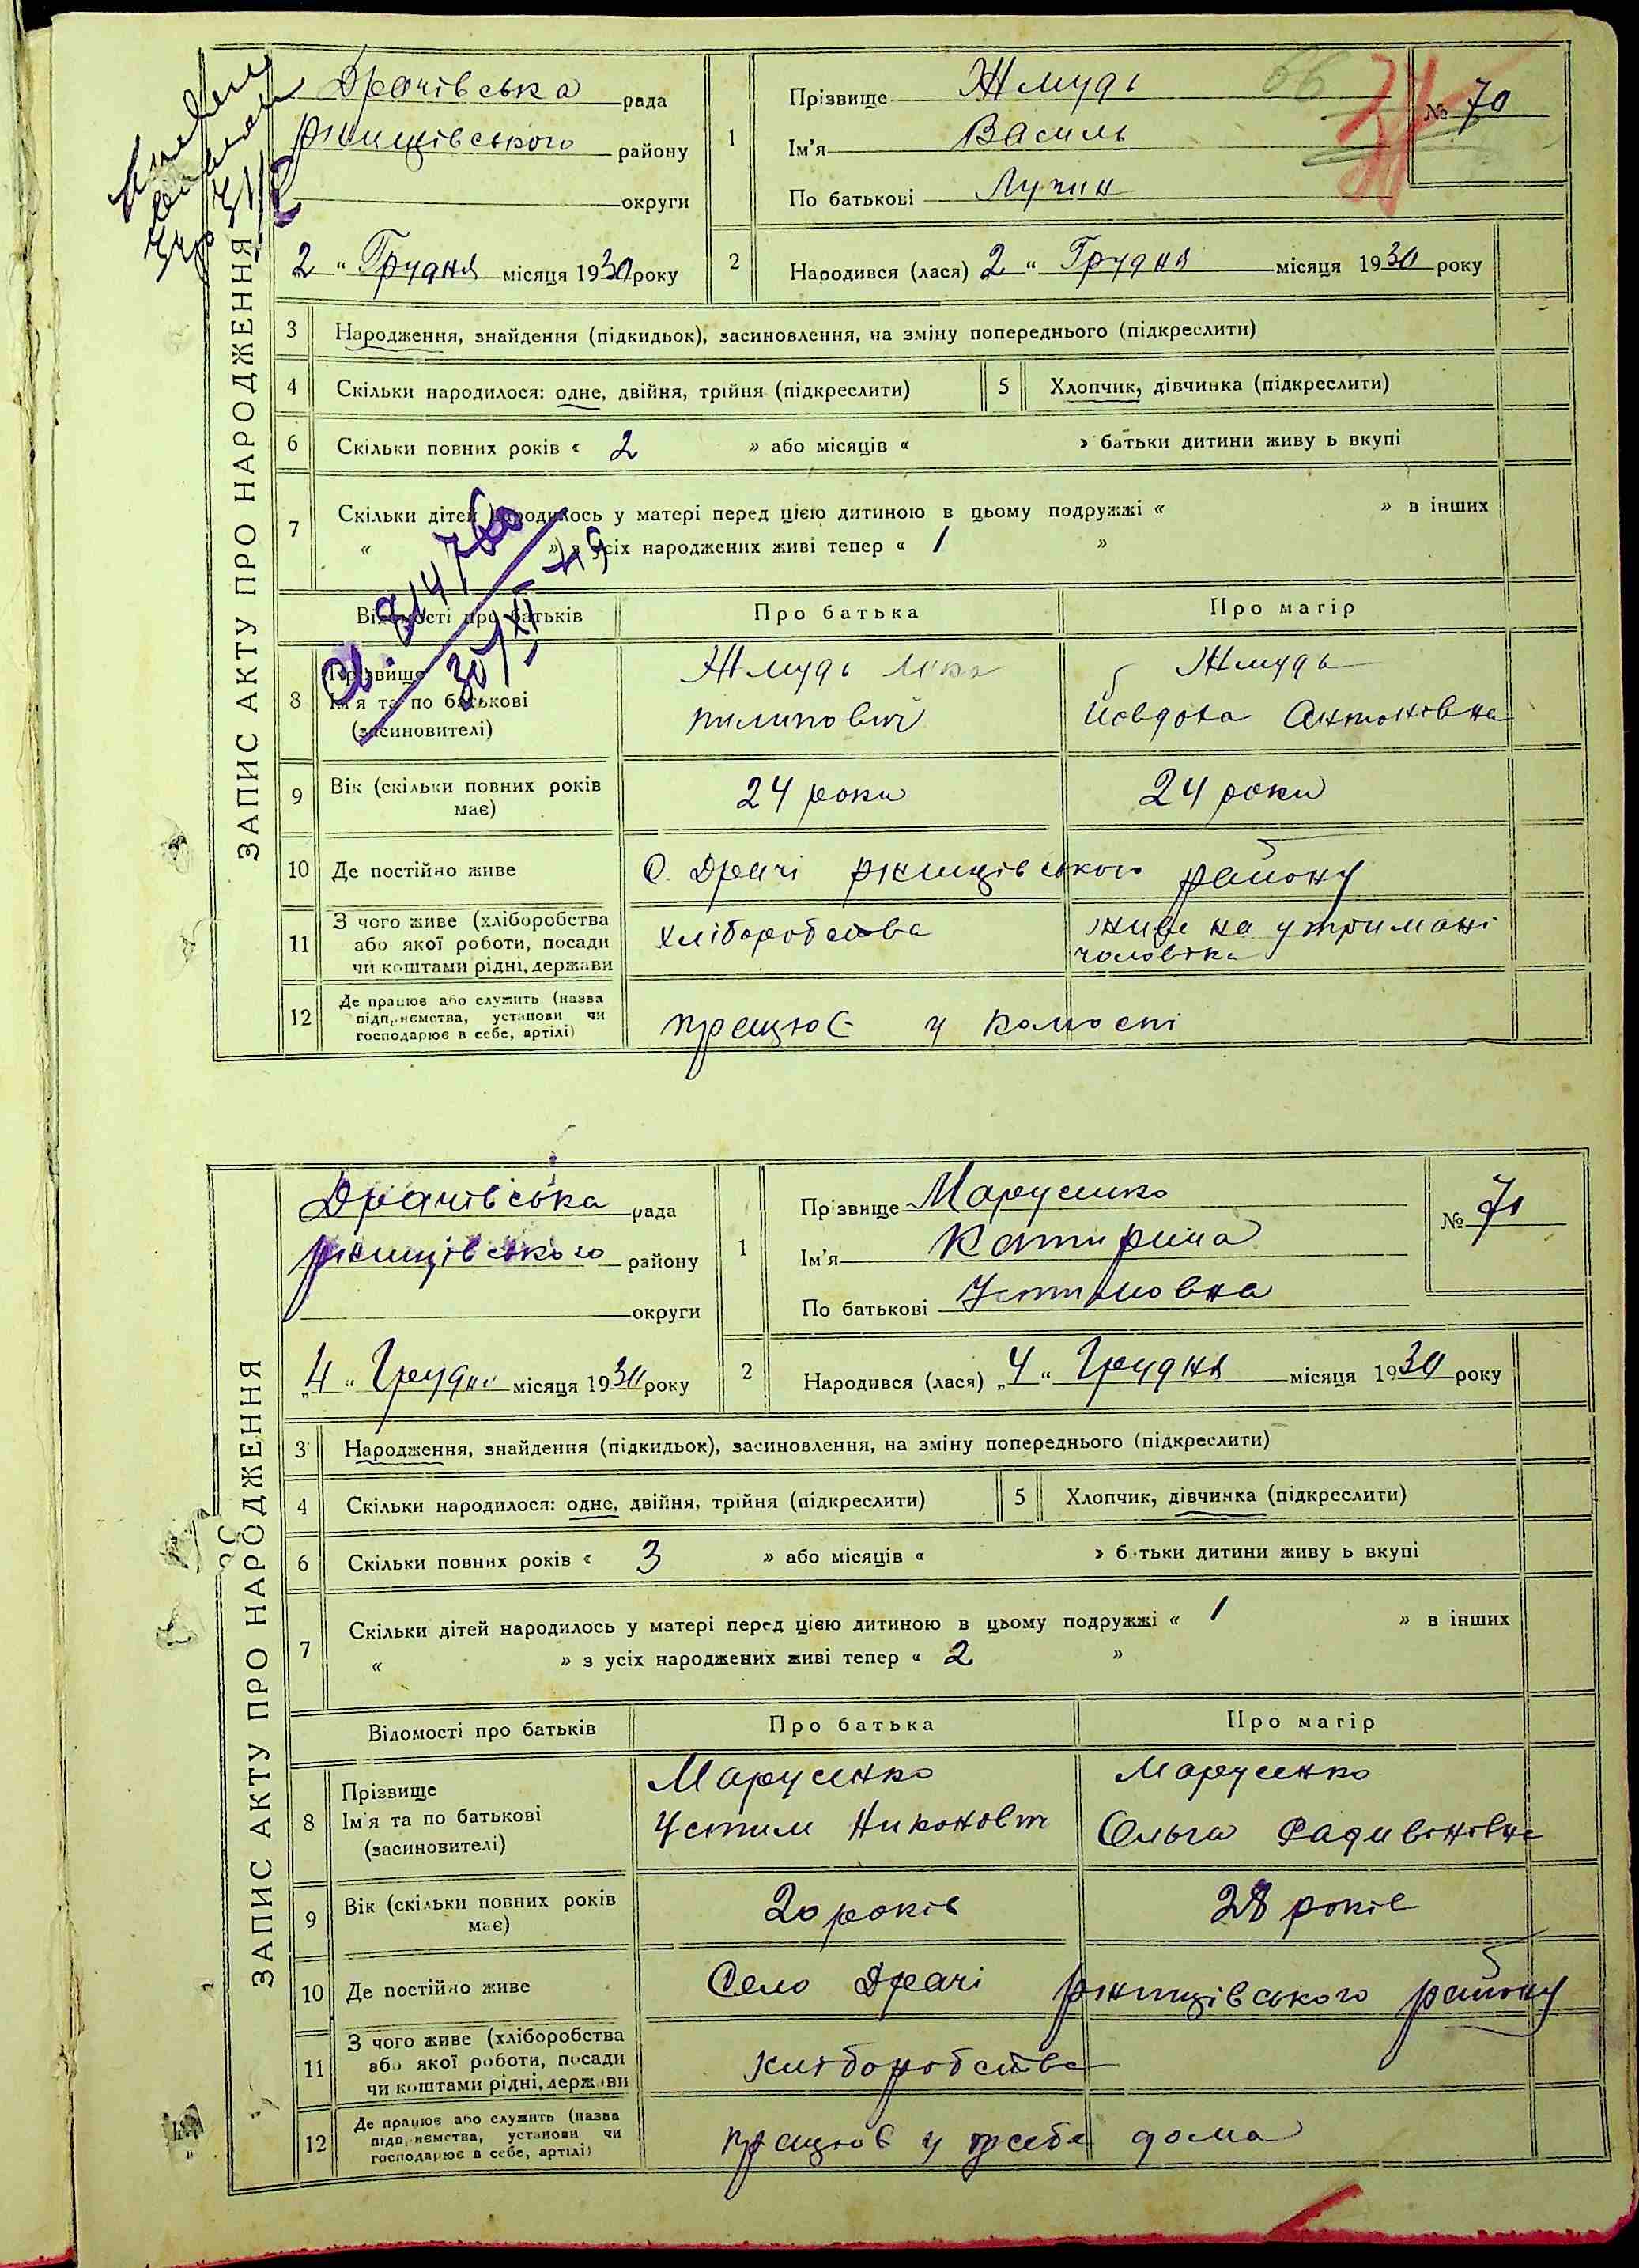 Драчівська рада
Ржищівського району
округи
2 " Грудня місяця 1930 року
1
Прізвище Жмудь
Ім'я Василь
По батькові
№ 70
66
2
Народився (лася) 2 " Грудня місяця 1930 року
ЗАПИС АКТУ ПРО НАРОДЖЕННЯ
3 Народження, знайдення (підкидьок), засиновлення, на зміну попереднього (підкреслити)
4 Скільки народилося: одне, двійня, трійня (підкреслити)
5 Хлопчик, дівчинка (підкреслити)
6 Скільки повних років « 2 » або місяців « » батьки дитини живу ь вкупі
7 Скільки дітей народилось у матері перед цією дитиною в цьому подружжі « » в інших
« » з усіх народжених живі тепер « 1 »
Відомості про батьків Про батька Про матір
8 Прізвище
Ім'я та по батькові
(засиновителі)
Жмудь
пилипович
Жмудь
Йовдоха Антонівна
9 Вік (скільки повних років
має)
24 роки 24 роки
10 Де постійно живе С. Драчі Ржищівського району
11 З чого живе (хліборобства
або якої роботи, посади
чи коштами рідні, держави
хліборобства
живе на утримані
чоловіка
12 Де працює або служить (назва
підприємства, установи чи
господарює в себе, артілі)
працює у
Драчівська рада
Ржищівського району
округи
„4 " Грудня місяця 1930 року
1
Прізвище Марусенко
Ім'я Катирина
По батькові Устимовна
№ 71
2
Народився (лася) „4 " Грудня місяця 1930 року
ЗАПИС АКТУ ПРО НАРОДЖЕННЯ
3 Народження, знайдення (підкидьок), засиновлення, на зміну попереднього (підкреслити)
4 Скільки народилося: одне, двійня, трійня (підкреслити)
5 Хлопчик, дівчинка (підкреслити)
6 Скільки повних років « 3 » або місяців « » батьки дитини живу ь вкупі
7 Скільки дітей народилось у матері перед цією дитиною в цьому подружжі « 1 » в інших
« » з усіх народжених живі тепер « 2 »
Відомості про батьків Про батька Про матір
8 Прізвище
Ім'я та по батькові
(засиновителі)
Марусенко
Устим Никонович
Марусенко
Ольга
9 Вік (скільки повних років
має)
20 років 28 років
10 Де постійно живе Село Драчі Ржищівського району
11 З чого живе (хліборобства
або якої роботи, посади
чи коштами рідні, держави
хліборобства
12 Де працює або служить (назва
підприємства, установи чи
господарює в себе, артілі)
працює у себе дома